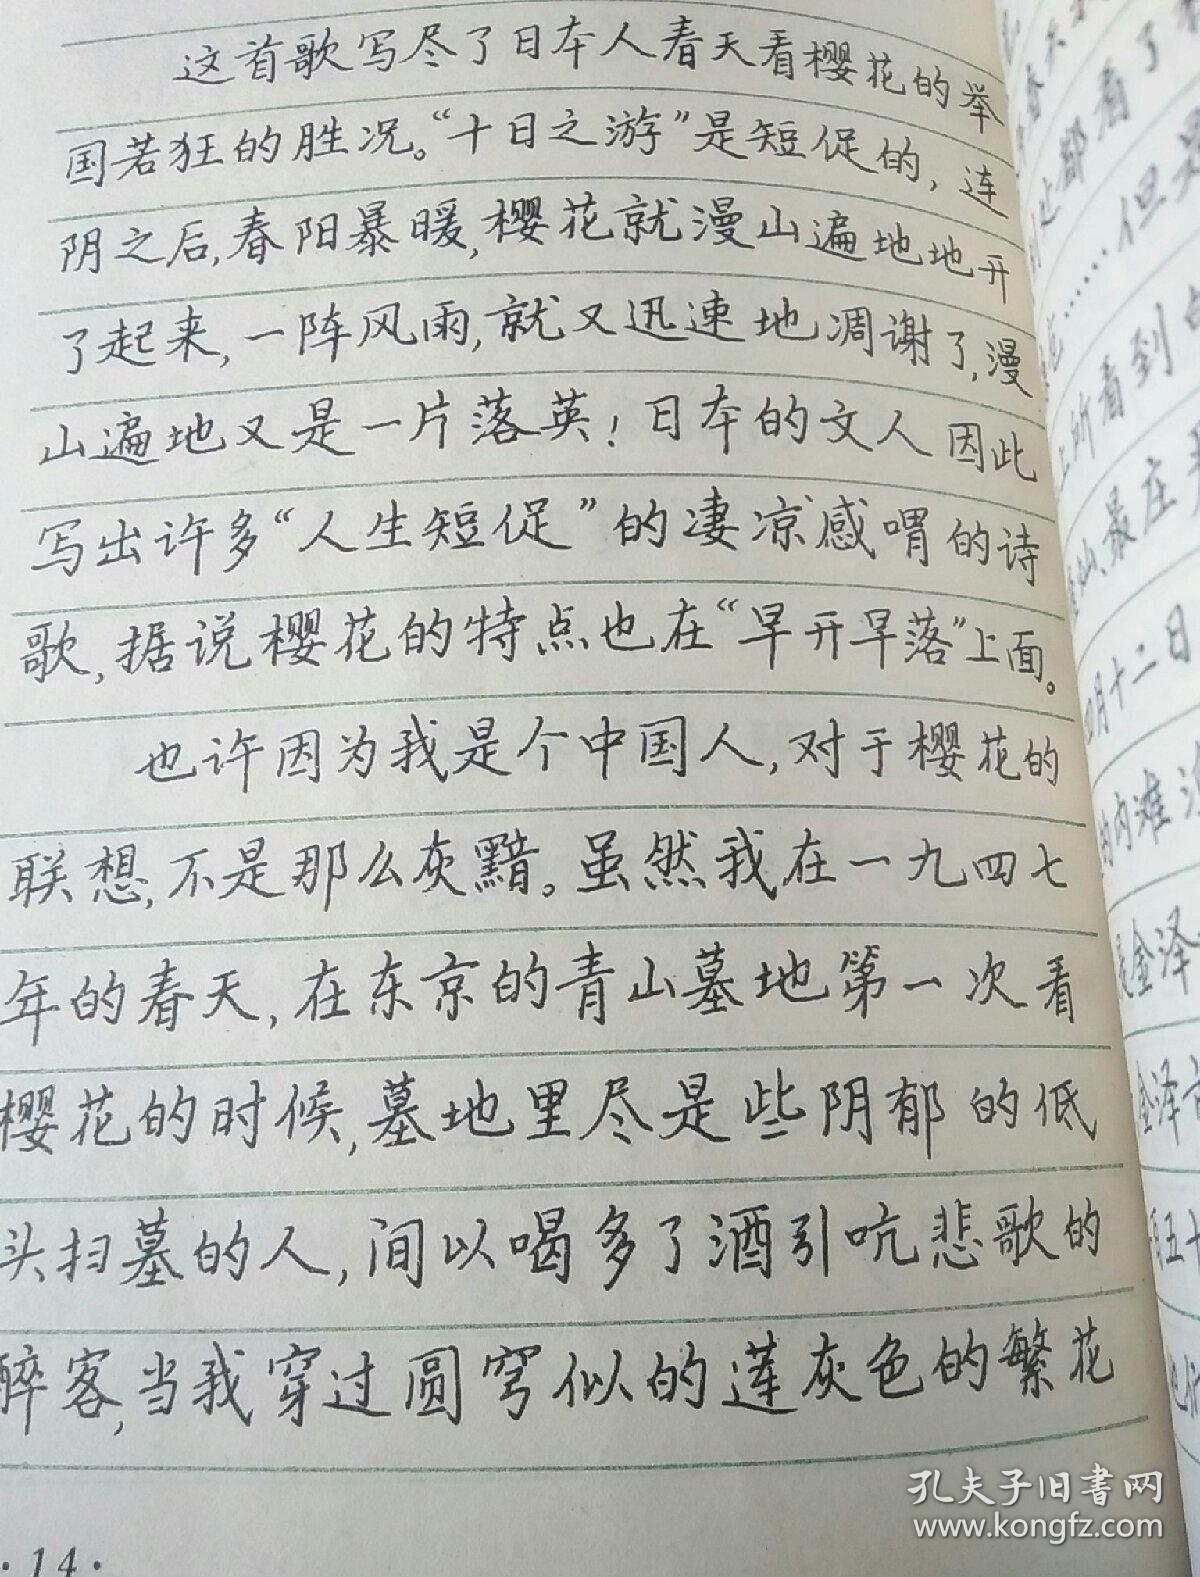 这首歌写尽了日本人春天看樱花的举
国若狂的胜况。“十日之游”是短促的，连
阴之后，春阳暴暖，樱花就漫山遍地地开
了起来，一阵风雨，就又迅速地凋谢了，漫
山遍地又是一片落英！日本的文人因此
写出许多“人生短促”的凄凉感喟的诗
歌，据说樱花的特点也在“早开早落”上面。
也许因为我是个中国人，对于樱花的
联想，不是那么灰黯。虽然我在一九四七
年的春天，在东京的青山墓地第一次看
樱花的时候，墓地里尽是些阴郁的低
头扫墓的人，间以喝多了酒引吭悲歌的
醉客，当我穿过圆穹似的莲灰色的繁花
·14·
都看了
……但
所看到
山、最庄
四月十二日
的内滩
金泽
金泽市
五十
孔夫子旧书网
www.kongfz.com